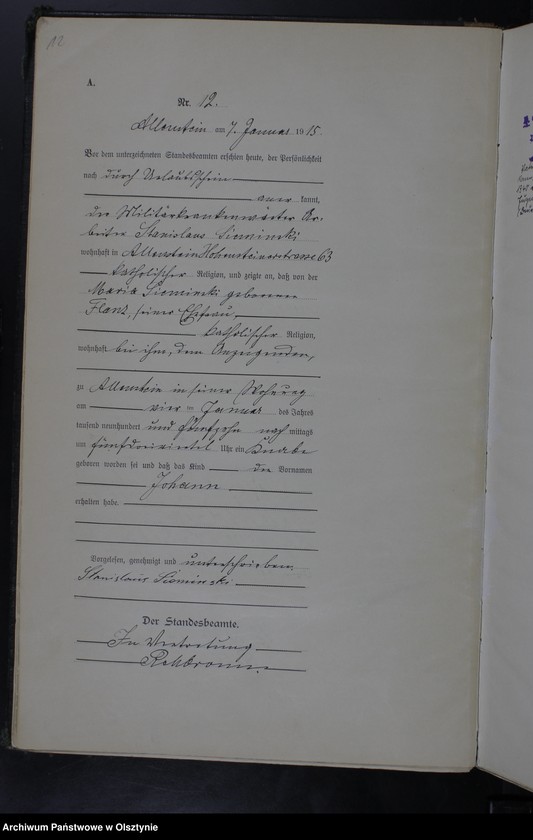 12
A.
Nr. 12.
Allenstein am 7. Januar 1915.
Vor dem unterzeichneten Standesbeamten erschien heute, der Persönlichkeit
nach durch Urlaubsschein
aner kannt,
der Militärkrankenwärter Ar-
beiter Stanislaus Sieminski
wohnhaft in Allenstein Hohensteinerstrasse 63
katholischer Religion, und zeigte an, daß von der
Maria Sieminski geborenen
seiner Ehefrau
katholischer Religion,
wohnhaft bei ihm, dem Anzeigenden,
zu Allenstein in seiner Wohnung
am vier ten Januar des Jahres
tausend neunhundert und fünfzehn nach mittags
um fünfdreiviertel Uhr ein Knabe
geboren worden sei und daß das Kind den Vornamen
Johann
erhalten habe.
Vorgelesen, genehmigt und unterschrieben.
Stanislaus Sieminski
Der Standesbeamte.
In Vertretung
Archiwum Państwowe w Olsztynie